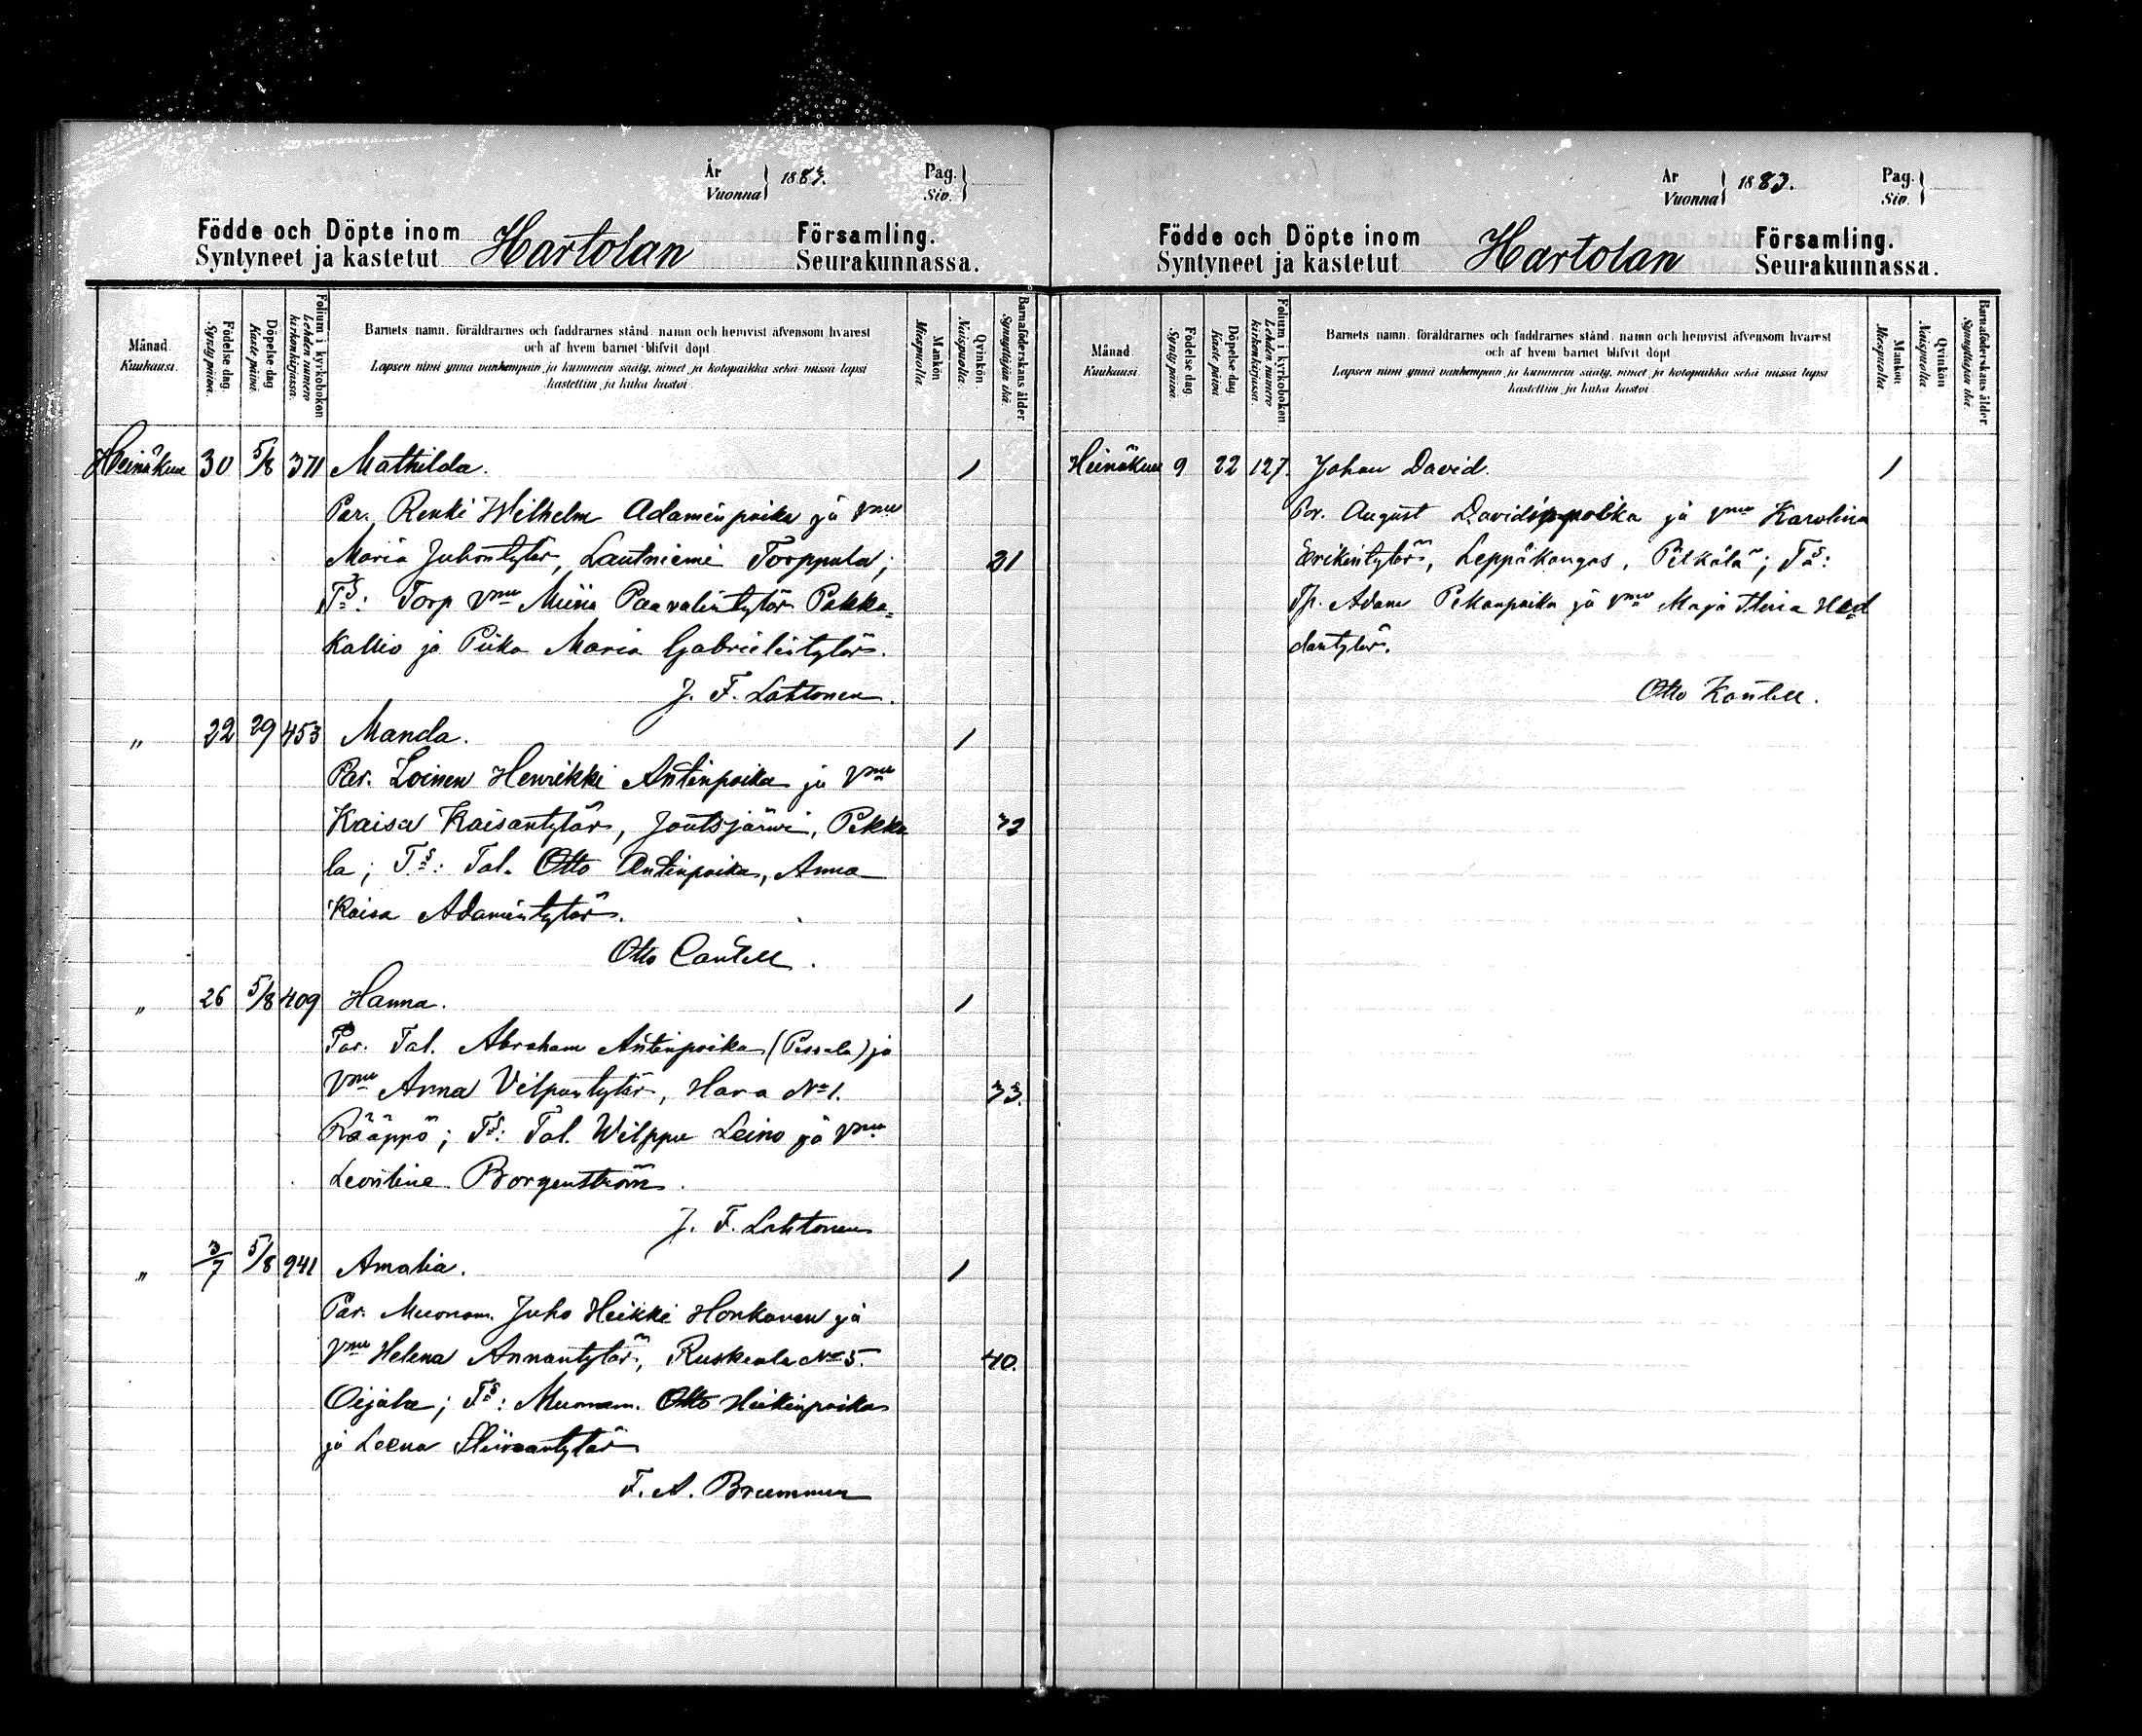 År
Vuonna
1883.
Pag.
Siv.
Födde och Döpte inom Hartolan Församling.
Syntyneet ja kastetut Seurakunnassa.
Månad. Kuukausi.
Födelse dag. Synty päivä.
Döpelse dag Kaste päivä.
Folium i kyrkoboken Lehden numero kirkonkirjassa.
Barnets namn, föräldrarnes och faddrarnes stånd, namn och hemvist äfvensom hvarest
och af hvem barnet blifvit döpt.
Lapsen nimi ynnä vanhempain ja kummein sääty, nimet ja kotopaikka sekä missä lapsi
kastettiin ja kuka kastoi.
Mankön Miespuolia.
Qvinkön. Naispuolia.
Barnaföderskans ålder. Synnyttäjän ikä.
Heinäkuu 30 5/8 371 Mathilda. 1
Par. Renki Wilhelm Adaminpoika ja Vmu
Maria Juhontytär, Lautniemi Torppula; 31
Ts: Torp Vmu Miina Paavalintytär Pakka-
kallio ja Piika Maria Gabrielintytär.
J. F. Lahtonen.
" 22 29 453 Manda. 1
Par. Loinen Henrikki Antinpoika ja Vmu
Kaisa Kaisantytär, Joutsjärwi, Pekka 32
la; Ts: Tal. Otto Antinpoika, Anna
Kaisa Adamintytär.
Otto Cantell.
" 26 5/8 409 Hanna. 1
Par. Tal. Abraham Antinpoika (Pessala) ja
Vmu Anna Vilpuntytär, Hara No 1. 33.
Rääppö; Ts: Tal. Wilppu Leino ja Vmu
Leontine Borgenström.
J. F. Lahtonen
" 3/7 5/8 941 Amalia. 1
Par. Muonam. Juho Heikki Honkanen ja
Vmu Helena Annantytär, Ruskeala No 5. 40.
Oijala; Ts: Muonam. Otto Heikinpoika
ja Leena
F. A. Brummer
År
Vuonna
1883.
Pag.
Siv.
Födde och Döpte inom Hartolan Församling.
Syntyneet ja kastetut Seurakunnassa.
Månad. Kuukausi.
Födelse dag. Synty päivä.
Döpelse dag. Kaste päivä.
Folium i kyrkoboken Lehden numero kirkonkirjassa.
Barnets namn, föräldrarnes och faddrarnes stånd, namn och hemvist äfvensom hvarest
och af hvem barnet blifvit döpt.
Lapsen nimi ynnä vanhempain ja kummein sääty, nimet ja kotopaikka sekä missä lapsi
kastettiin ja kuka kastoi.
Mankön Miespuolia.
Qvinkön Naispuolia.
Barnaföderskans ålder. Synnyttäjän ikä.
Heinäkuu 9 22 127. Johan David. 1
Par. August Davidinpoika ja Vmu Karolina
Erikintytär, Leppäkangas, Pilkälä; Ts:
Tp. Adam Pekanpoika ja Vmu Maja Stina Hed
dantytär.
Otto Kantell.